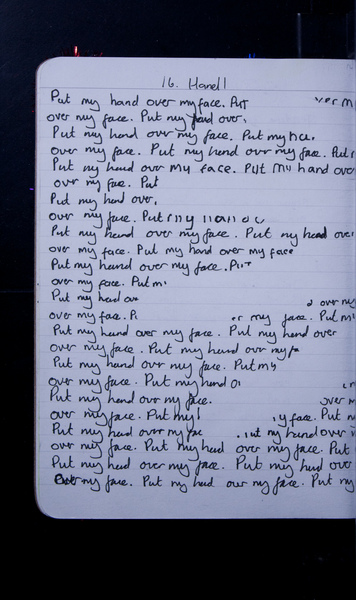 16. Hand 1
Put my hand over my face. Put over m
over my face. Put my hand over.
Put my hand over my face. Put my ha.
over my face. Put my hand over my face. Put
Put my hand over my face. Put my hand over
over my face. Put
Put my hand over.
over my face. Put my hand ov
Put my hand over my face. Put my hand over
over my face. Put my hand over my face
Put my hand over my face. Put
over my face. Put m
Put my hand ov over my
over my face. P. er my face. Put m
Put my hand over my face. Put my hand over
over my face. Put my hand over my fa
Put my hand over my face. Put my
over my face. Put my hand o
Put my hand over my face. over m
over my face. Put my y face. Put m
Put my hand over my face . put my hand over
over my face. Put my hand over my face. Put
Put my hand over my face. Put my hand over
over my face. Put my hand over my face. Put my